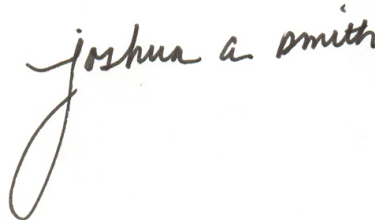 joshua a smith